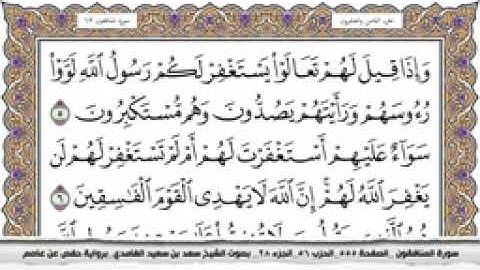 الجزء الثامن والعشرون
سورة المنافقون ٦٣
وَإِذَا قِيلَ لَهُمْ تَعَالَوْا۟ يَسْتَغْفِرْ لَكُمْ رَسُولُ ٱللَّهِ لَوَّوْا۟
رُءُوسَهُمْ وَرَأَيْتَهُمْ يَصُدُّونَ وَهُم مُّسْتَكْبِرُونَ ٥
سَوَآءٌ عَلَيْهِمْ أَسْتَغْفَرْتَ لَهُمْ أَمْ لَمْ تَسْتَغْفِرْ لَهُمْ لَن
يَغْفِرَ ٱللَّهُ لَهُمْ إِنَّ ٱللَّهَ لَا يَهْدِى ٱلْقَوْمَ ٱلْفَـٰسِقِينَ ٦
سورة المنافقون _ الصفحة ٥٥٥ _ الحزب ٥٦ _ الجزء ٢٨ _ بصوت الشيخ سعد بن سعيد الغامدي _ برواية حفص عن عاصم